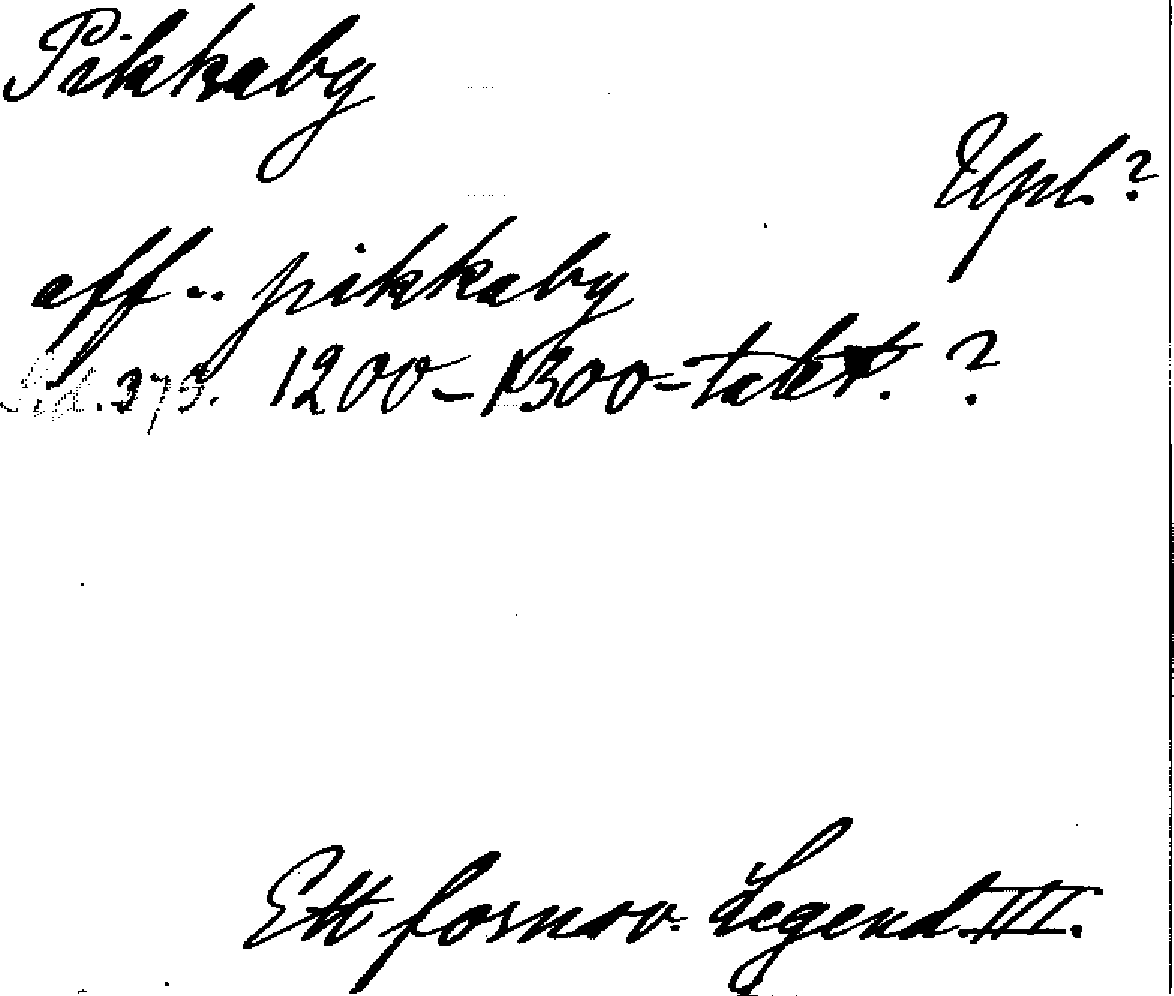 Pikkaby
Upl.?
aff .. pikkaby
Sid. 373. 1200-1300-talet. ?
Ett fornsv. Legend. III.